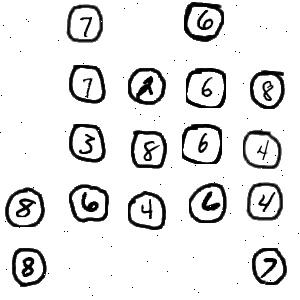 7 6
7 2 6 8
3 8 6 4
8 6 4 6 4
8 7